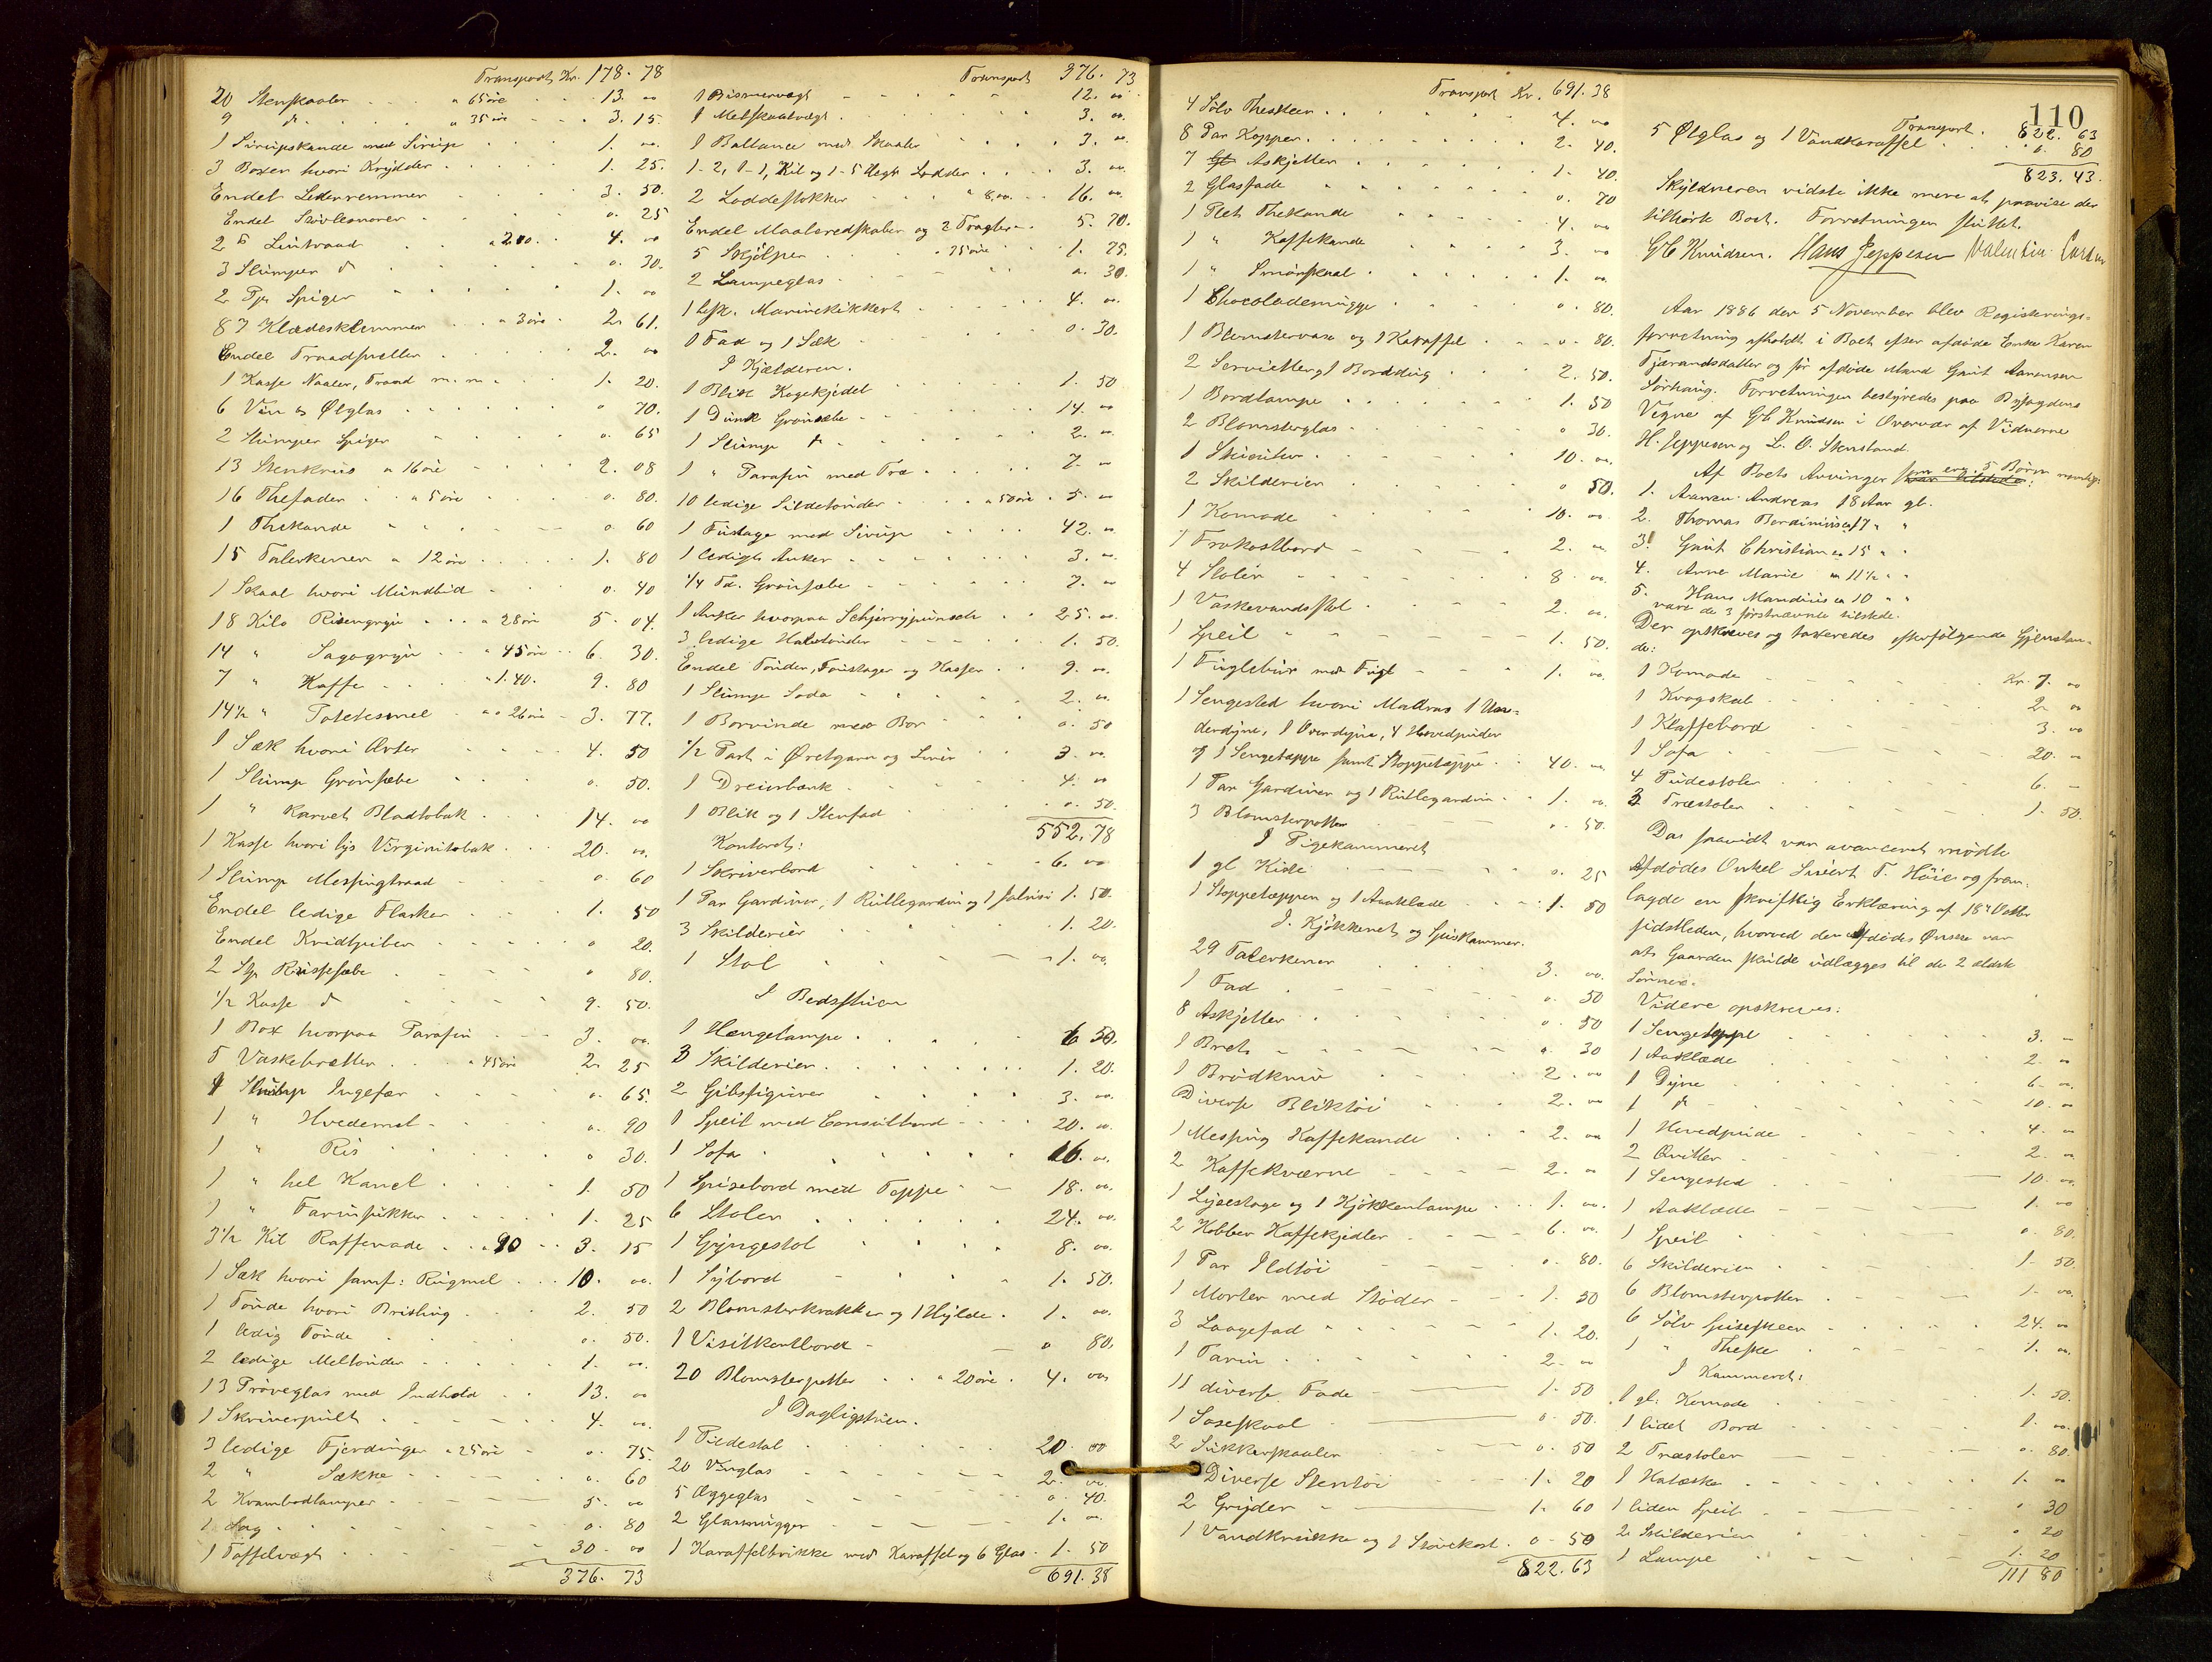 Transport Kr. 178. 78
20 Stenskaaler . . . a 65 øre . . 13. 00
9 do . . . . a 35 øre . . 3. 15.
1 Sirupskande med Sirup . . . 1. 00.
3 Boxer hvori Krydder . . . . 1. 25.
Endel Lederremmer . . . 3. 50.
Endel Skotlesnorer . . . 0. 25
2 ℔ Lintraad . . . a 2 00. . . 4. 00
3 Slumper do . . . . . 0. 30.
2 Pr Spiger . . . . . 1. 00
87 Klædesklemmer . . a 3 øre . . 2. 61.
Endel Traadsneller . . . . 2. 00
1 Kasse Naaler, Traad m. m. . . 1. 20.
6 Vin og Ølglas . . . . . 0 70.
2 Slumper Spiger . . . . 0. 65
13 Stenkrus a 16 øre . . . 2. 08
16 Thefader . . a 5 øre . . . 0. 80.
1 Thekande . . . . . 0. 60
15 Talerkener a 12 øre . . . . 1. 80
1 Skaal hvori Mundbid . . . 0. 40
18 Kilo Risengryn . . . a 28 øre 5. 04.
14 " Sagogryn . . a 45 øre . . 6. 30.
7 " Kaffe . . . . a 1.40. 9. 80
14½ " Potetesmel . . a 26 øre . 3. 77.
1 Sæk hvori Erter . . . . 4. 50
1 Slump Grønsæbe . . . . 0. 50.
1 " karvet Bladtobak . . . 14. 00
1 Kasse hvori lys Virginitobak . . 20. 00.
1 Slump Messingtraad . . . 0. 60
Endel ledige Flasker . . . . 1. 50
Endel Kridtpiber . . . . 0 20.
2 Stp Russesæbe . . . . 0 80.
½ Kasse do . . . . 9. 50.
1 Box hvorpaa Parafin . . . 3. 00.
5 Vaskebrætter . . . a 45 øre 2. 25
1 Slump Ingefær . . . . 0. 65.
1 " Hvedemel . . . . 0. 90
1 " Ris . . . . . 0 30.
1 " hel Kanel . . . . 1. 50
1 " Farinsukker . . . . 1. 25
3½ Kil Raffenade . . a 90 . . 3. 15
1 Sæk hvori sams: Rugmel . . . 10. 00.
1 Tønde hvori Brisling . . . 2. 50
1 ledig Tønde . . . . 0. 50.
2 ledige Meltønder . . . . 1. 00.
13 Prøveglas med Indhold . . 13. 00
1 Skriverpult . . . . . 4. 00.
3 ledige Fjerdinger a 25 øre . 0. 75.
2 " Sække . . . . 0. 60
2 Krambodlamper . . . . 5. 00
1 Sag . . . . . 0. 80
1 Taffelvægt . . . . . 30. 00
376. 73
Transport 376. 73
1 Bismervægt . . . . . 12. 00
1 Melskaalvægt . . . . 3. 00.
1 Ballance med Skaaler . . . 3. 00.
1-2, 1-1, Kil og 1-5 Hegt Lodder . . . 3. 00
2 Loddestokker . . . a 8,00. . . 16. 00
Endel Maaleredskaber og 2 Tragter . . 5. 70.
5 Skjølper . . . a 25 øre . . 1. 25.
2 Lampeglas . . . . . 0. 30.
1 besk. Marinekikkert . . . . 4. 00.
1 Fad og 1 Sæk . . . . 0. 30.
I Kjælderen.
1 Blik Kogekjedel . . . . 1. 50
1 Dunk Grønsæbe . . . . 14. 00
1 Slump do . . . . 2. 00
1 " Parafin med Træ . . . 7. 00
10 ledige Sildetønder . . . a 50 øre . 5. 00
1 Fustage med Sirup . . . 42. 00
1 ledigt Anker . . . . . 3. 00
¼ Td. Grønsæbe . . . . . 7. 00
1 Anker hvorpaa Schjerrypunsch . . 25. 00.
3 ledige Halvtønder . . . . 1. 50.
Endel Tønder, Fustager og Kasser . . 9. 00.
1 Slump Soda . . . . . 2. 00
1 Borvinde med Bor . . . . 0. 50
½ Part i Øretgarn og Liner . . . 3. 00.
1 Dreierbænk . . . . . 4. 00
1 Blik og 1 Stenfad . . . . 0. 50.
552,78
Kontoret:
1 Skriverbord . . . . . 6. 00
1 Par Gardiner, 1 Rullegardin og 1 Jalusi 1. 50.
3 Skilderier . . . . . 1. 20.
1 Stol . . . . . 1. 00.
I Bedsstuen
1 Hængelampe . . . . . 6 50.
3 Skilderier . . . . . 1. 20.
2 Gibsfigurer . . . . . 3. 00.
1 Speil med Consulbord . . . 20. 00.
1 Sofa . . . . . 16. 00.
1 Spisebord med Teppe . . . 18. 00.
6 Stoler . . . . . 24. 00.
1 Gyngestol . . . . . 8. 00.
1 Sybord . . . . . 1. 50.
2 Blomsterkrakker og 1 Hylde . 1. 00.
1 Visitkortbord . . . . 0 80.
20 Blomsterpotter . . a 20 øre . 4. 00
I Dagligstuen.
1 Pudestol . . . . . 20. 00
20 Vinglas . . . . . 2. 00.
5 Æggeglas . . . . . 0. 40.
2 Glasmugger . . . . . 1. 00.
1 Karaffelbrikke med Karaffel og 6 Glas . 1. 50
691. 38
Transport Kr. 691. 38
4 Sølv Theskeer . . . . . 4. 00
8 Par Kopper . . . . . 2. 40.
7 Gl Askjetter . . . . . 1. 40.
2 Glasfade . . . . . 0. 70
1 Plet Thekande . . . . 4. 00
1 " Kaffekande . . . . 3. 00
1 " Smørskaal . . . . 1. 00.
1 Chocolademugge . . . . 0. 80.
1 Blomstervase og 1 Karaffel . . . 0. 80.
2 Servietter, 1 Borddug . . . 2. 50.
1 Bordlampe . . . . . 1. 50
2 Blomsterglas . . . . . 0 30.
1 . . . . . 10. 00.
2 Skilderier . . . . . 0 50.
1 Komode . . . . . 10. 00
1 Frokostbord . . . . . 2. 00
4 Stoler . . . . . 8. 00.
1 Vaskevandsstol . . . . 2. 00.
1 Speil . . . . . 1. 50.
1 Fuglebur med Fugl . . . 1. 00.
1 Sengested hvori Madras 1 Un-
derdyne, 1 Overdyne, 4 Hovedpuder
og 1 Sengetæppe samt Stoppetæppe . . 40. 00.
1 Par Gardiner og 1 Rullegardin . . 1. 00.
3 Blomsterpotter . . . . 0. 50.
I Pigekammeret
1 gl Kiste . . . . . 0. 25
1 Stoppetæppen og 1 Aaklæde . . . 1. 50
I Kjøkkenet og Spiskammer.
29 Talerkener . . . . . 3. 00.
1 Fad . . . . . 0. 50
8 Askjetter . . . . . 0. 50
1 Bret . . . . . 0. 30
1 Brødkniv . . . . . 2. 00
Diverse Bliktøi . . . . 2. 00
1 Messing Kaffekande . . . 2. 00
2 Kaffekværne . . . . . 2. 00
1 Lysestage og 1 Kjøkkenlampe . . . 1. 00.
2 Kobber Kaffekjedler . . . . 6. 00.
1 Par Ildtøi . . . . . 0. 80.
1 Morter med Støder . . . 1. 50
3 Laagefad . . . . . 1. 20.
1 Tarin . . . . . 2. 00
11 diverse Fade . . . . 1. 50
1 Soseskaal . . . . . 0. 50.
2 Sukkerskaaler . . . . 0. 50
Diverse Stentøi . . . . 1. 20
2 Gryder . . . . . 1. 60
1 Vandkrukke og 1 Støvekost . 0. 50
822. 63
110
Transport . 822. 63
5 Ølglas og 1 Vandkaraffel . . . 0. 80
823. 43.
Skyldneren vidste ikke mere at paavise der
tilhørte Boet. Forretningen sluttet.
GC Knudsen. Hans Jeppesen Valentin
Aar 1886 den 5 November blev Registrerings-
forretning afholdt i Boet efter afdøde Enke Karen
Tjerandsdatter og før afdøde Mand Gaut Aanensen
Sørhaug. Forretningen bestyredes paa Byfogdens
Vegne af GC Knudsen i Overvær af Vidnerne
H. Jeppesen og L. O. Stensland.
Af Boets Arvinger som ere 5 Børn nemlig:
var tilstede:
1. Aanen Andreas 18 Aar gl.
2. Thomas Berdinius ca 17 " "
3. Gaut Christian ca 15 " "
4. Anne Marie ca 11½ " "
5. Hans Mandius ca 10 " "
vare de 3 førstnævnte tilstede.
Der opskreves og taxeredes efterfølgende Gjenstan-
de:
1 Komode . . . . . Kr. 7. 00
1 Kragskab . . . . . 2. 00
1 Klaffebord . . . . . 3. 00
1 Sofa . . . . . 20. 00
4 Pudestoler . . . . . 6. —
3 Træstoler . . . . . 1. 50.
Da saavidt var avanceret mødte
Afdødes Onkel Sivert T. Høie og frem-
lagde en skriftlig Erklæring af 18de Octbr
sidstleden, hvorved den afdødes Ønske var
at Gaarden skulde udlægges til de 2 ældste
Sønner.
Videre opskreves:
1 Sengeteppe . . . . . 3. —
1 Aaklæde . . . . . 2. 00
1 Dyne . . . . . 6. 00.
1 do . . . . . 10. 00
1 Hovedpude . . . . . 4. 00
2 Qvitler . . . . . 2. 00
1 Sengested . . . . . 10. 00.
1 Aaklæde . . . . . 1. 00
1 Speil . . . . . 0. 80.
6 Skilderier . . . . . 1. 50.
6 Blomsterpotter . . . . 1. 00.
6 Sølv Spiseskeer . . . . 24. 00
1 " Theske . . . . 1. 00.
I Kammeret:
1 gl. Komode . . . . . 1. 50.
1 lidet Bord . . . . . 1. 00.
2 Træstoler . . . . . 0. 80.
1 Hatæske . . . . . 1. 00
1 liden Speil . . . . . 0 30
2 Skilderier . . . . . 0 20
1 Lampe . . . . . 1. 20
111 80